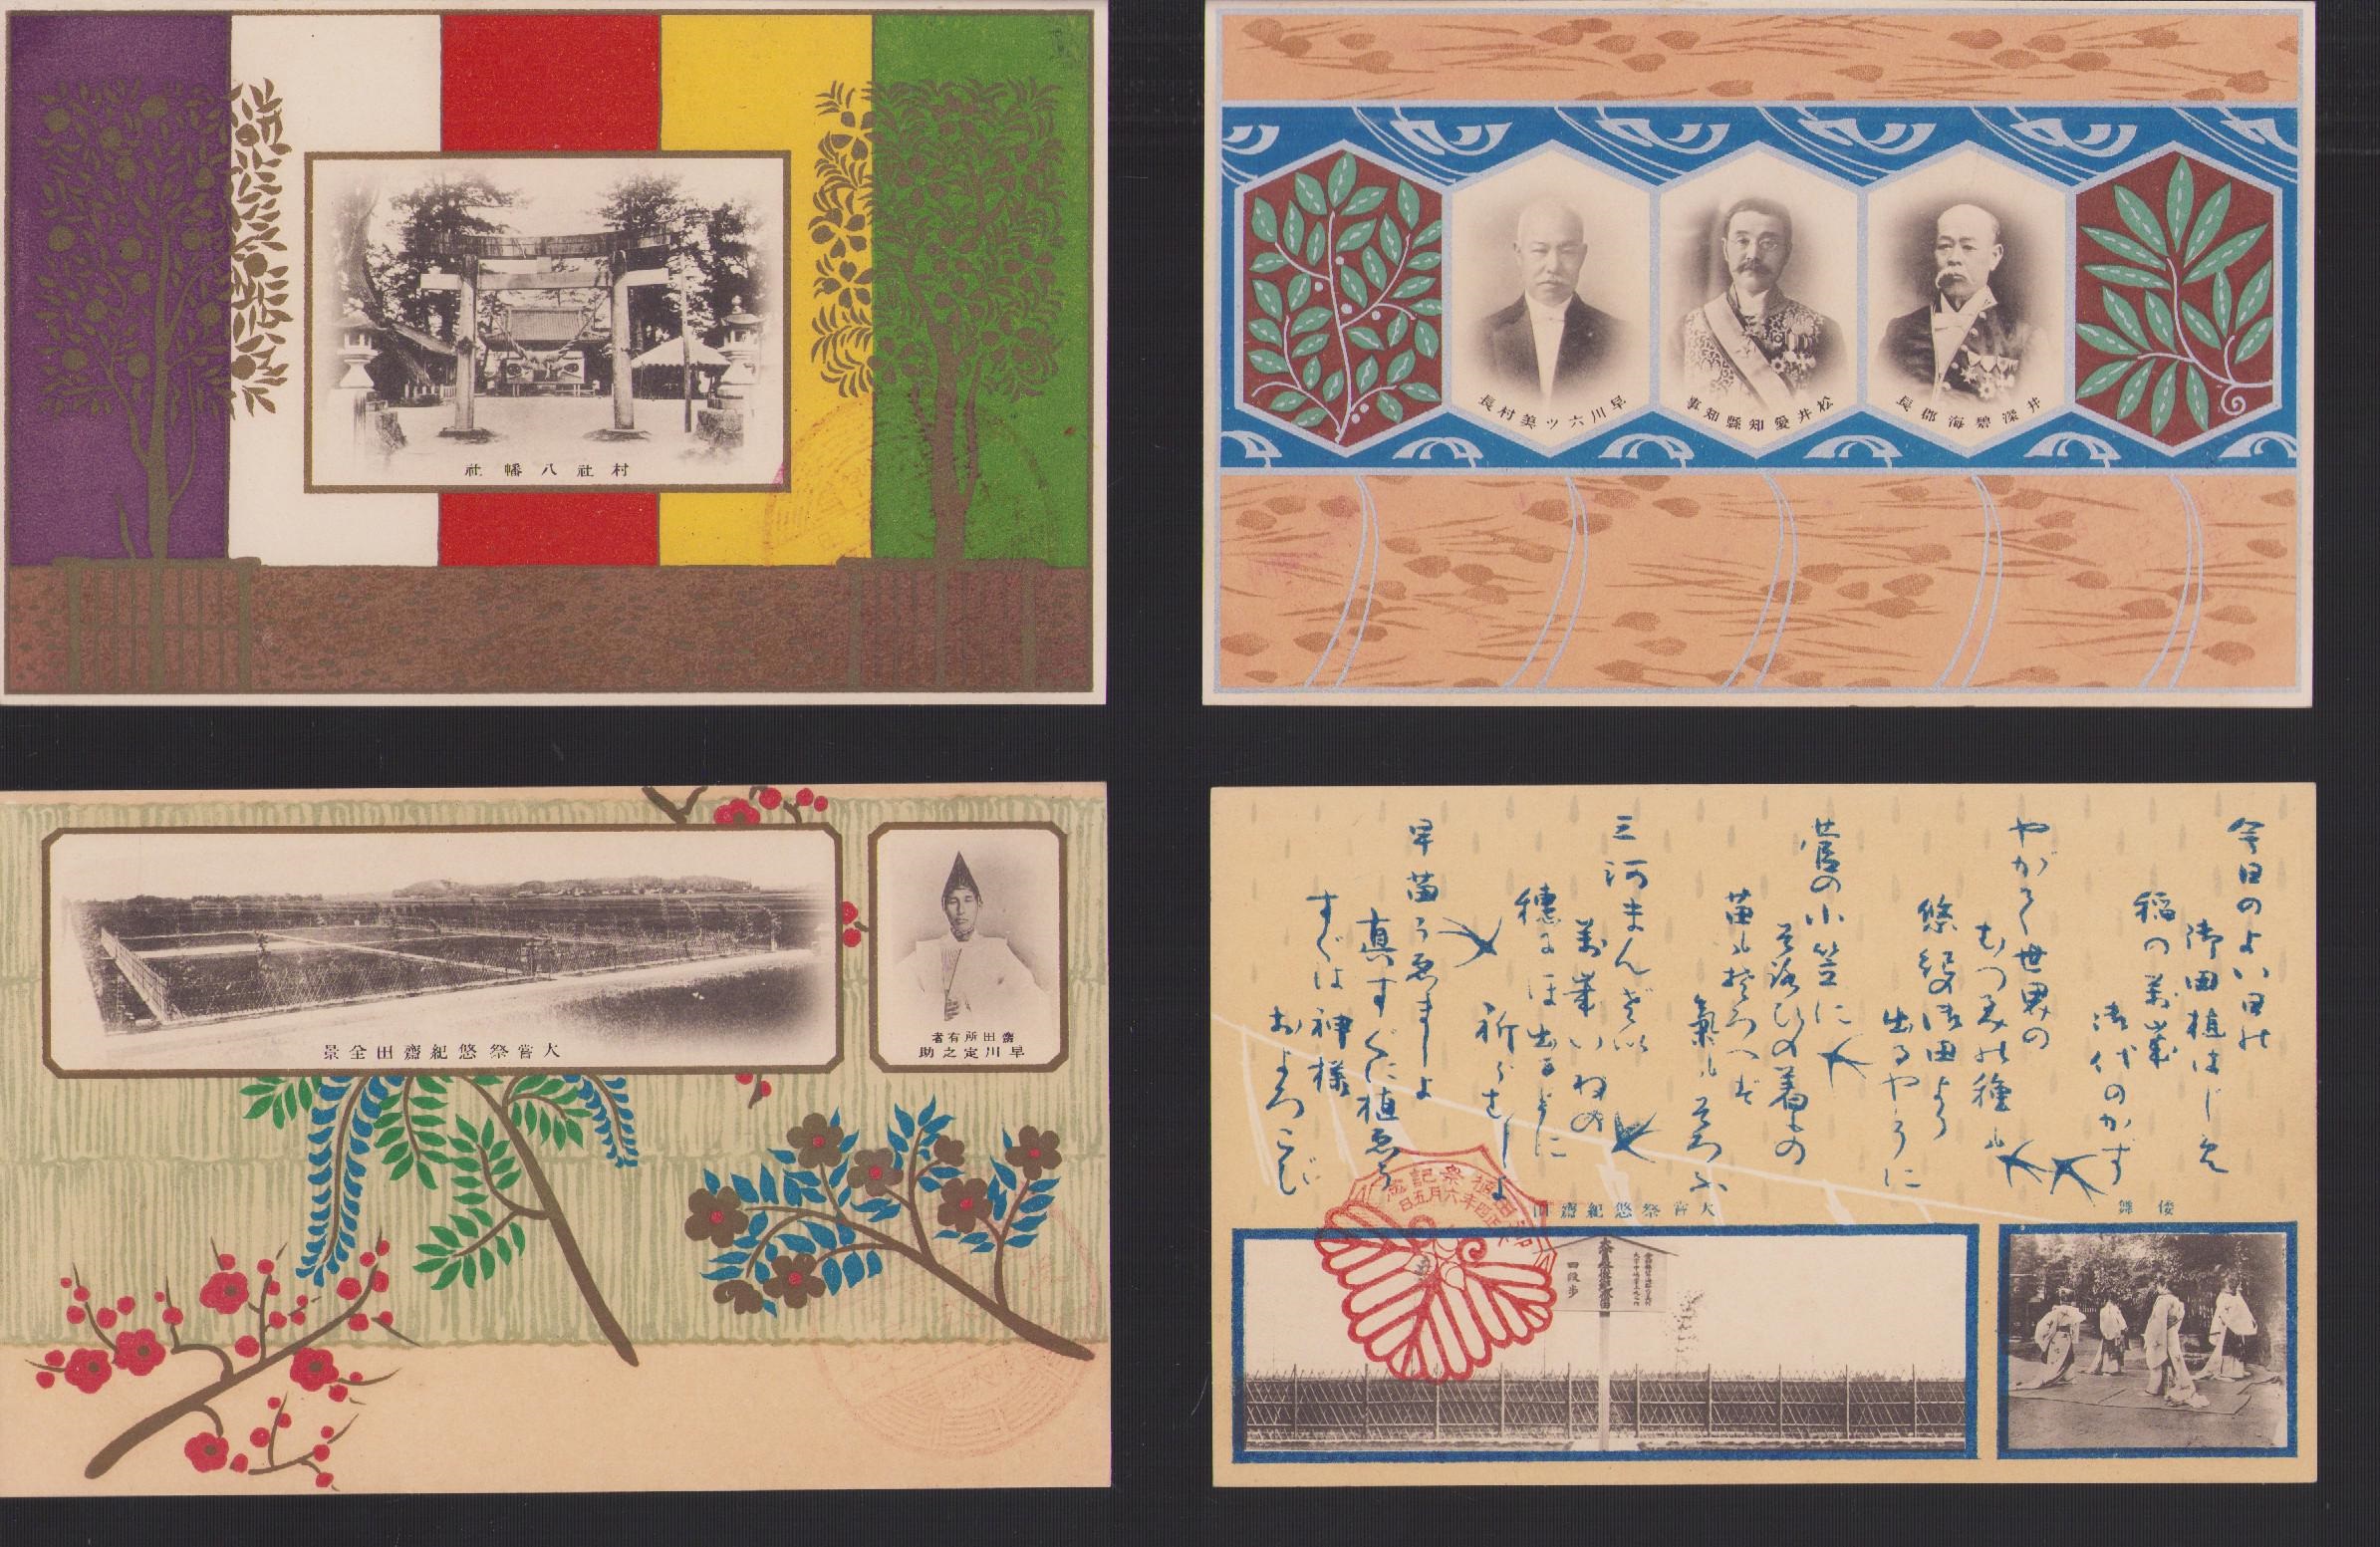 村社八幡社
早川六ツ美村長
松井愛知縣知事
井深碧海郡長
大嘗祭悠紀齋田全景
齋田所有者
早川定之助
今日のよい日に
御田植はじめ
稲の萬歳
御代のかず
やがて世界の
むつみの種に
悠紀の御田より
出るやうに
菅の小笠に
そろひの着もの
苗もそろへば
氣もそろふ
三河まんざい
萬歳いねの
穂にほ出るよに
祈らましよ
早苗うゑましよ
真すぐに植ゑろ
すぐは神様
およろこび
大嘗祭悠紀齋田
倭舞
御田植祭記念
大正四年六月五日
四段歩